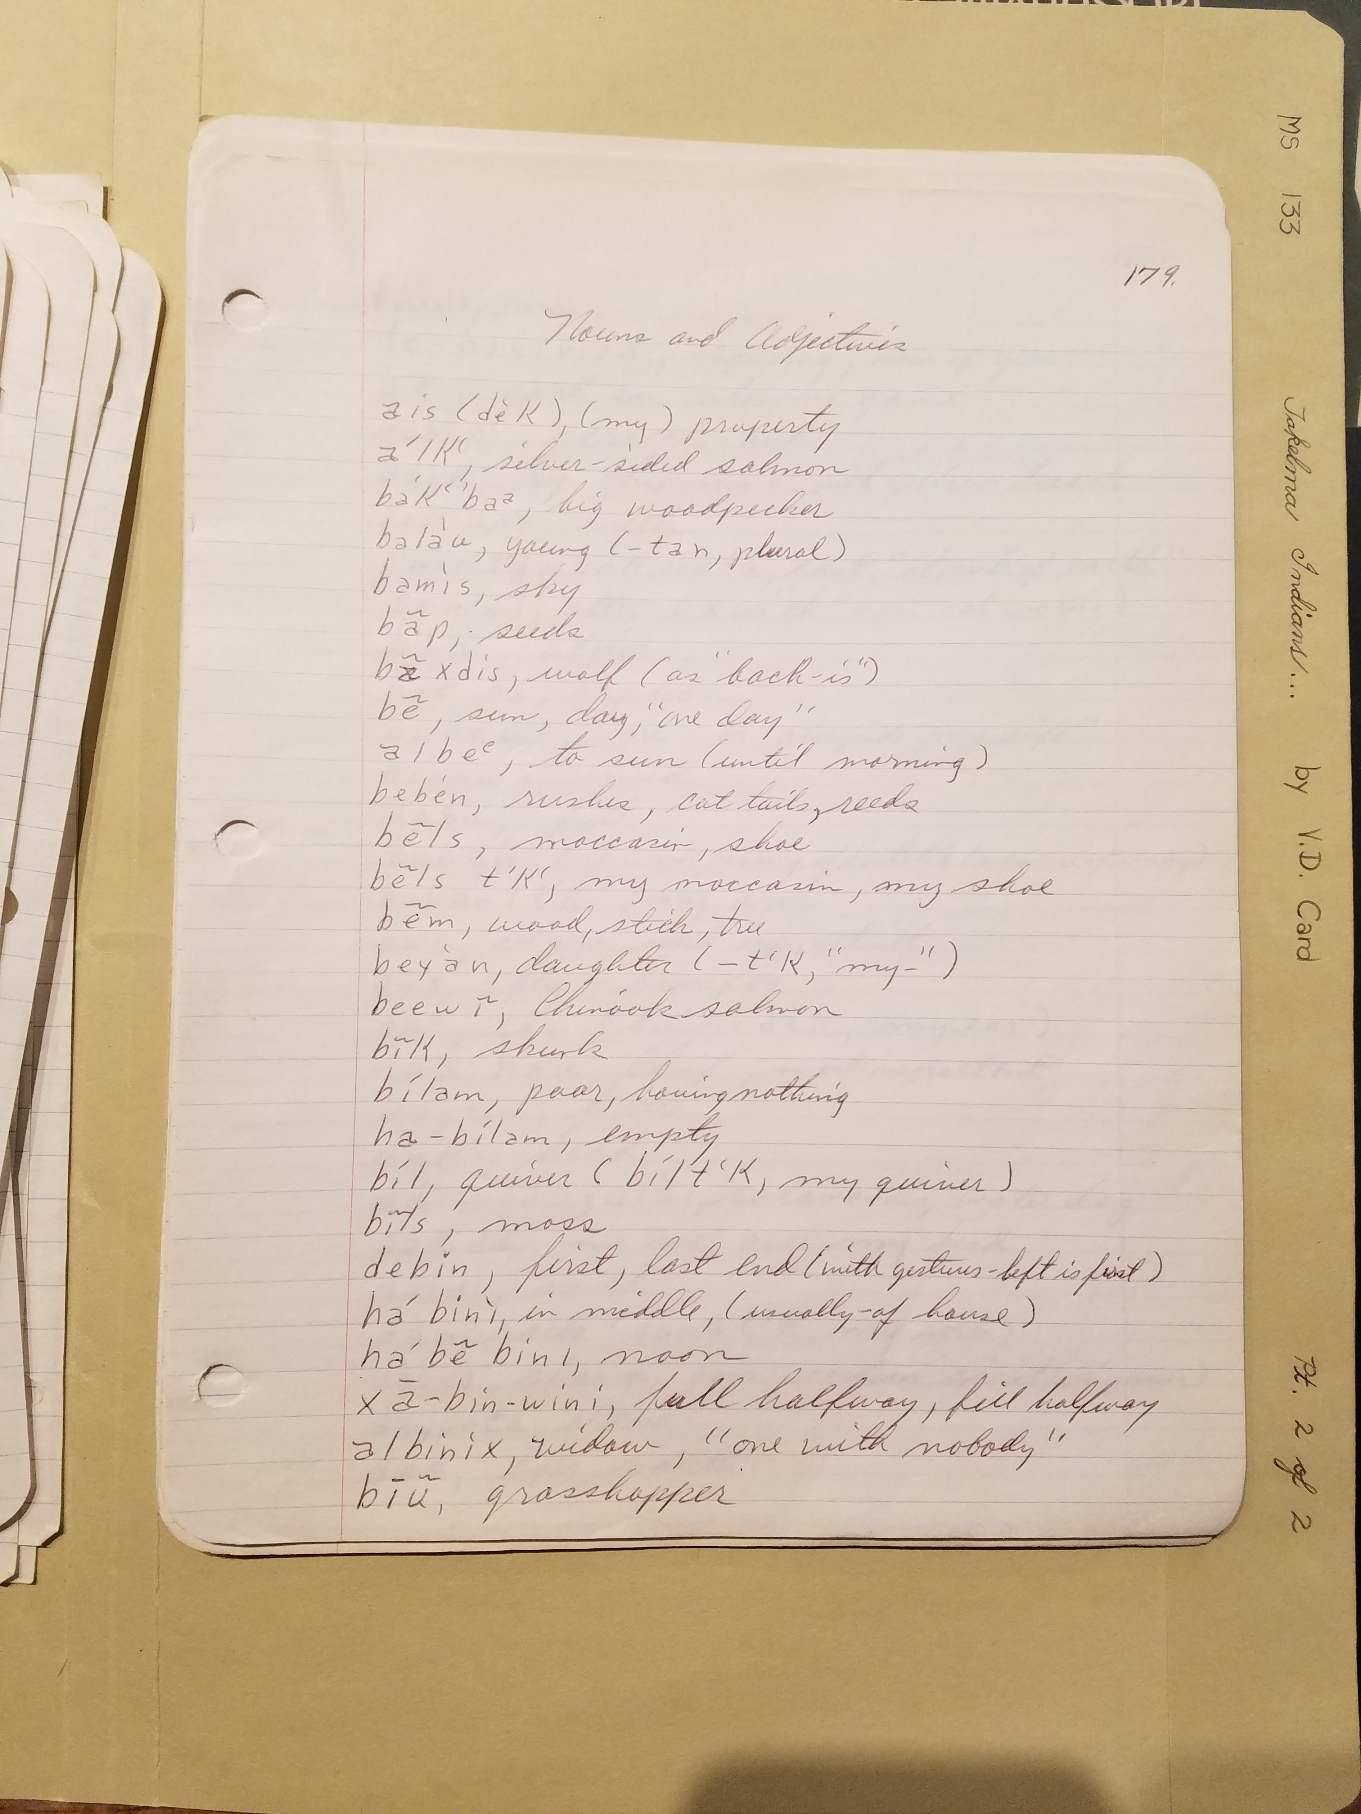 179.
Nouns and Adjectives
ais (dèK), (my) property
a´lKʻ, silver-sided salmon
bá´Kʻ'baᵃ, big woodpecker
balàu, young (-tan, plural)
bamìs, sky
bã̄p, seeds
bã̄xdis, wolf (as "back-is")
bẽ, sun, day, "one day"
albeᵉ, to sun (until morning)
bebén, rushes, cat tails, reeds
bẽls, moccasin, shoe
bẽls t'Kʻ, my moccasin, my shoe
bẽm, wood, stick, tree
beyàn, daughter (-tʻK, "my-")
beewĩ, Chinook salmon
bĩK, skunk
bílam, poor, having nothing
ha-bílam, empty
bíl, quiver (bíltʻK, my quiver)
bĩls, moss
debin, first, last end (with gestures-left is first)
há binì, in middle, (usually-of house)
há bẽ bini, noon
xā-bin-wini, full halfway, fill halfway
albinix, widow, "one with nobody"
bīũ, grasshopper
MS 133 Takelma Indians... by V.D. Card Pt. 2 of 2